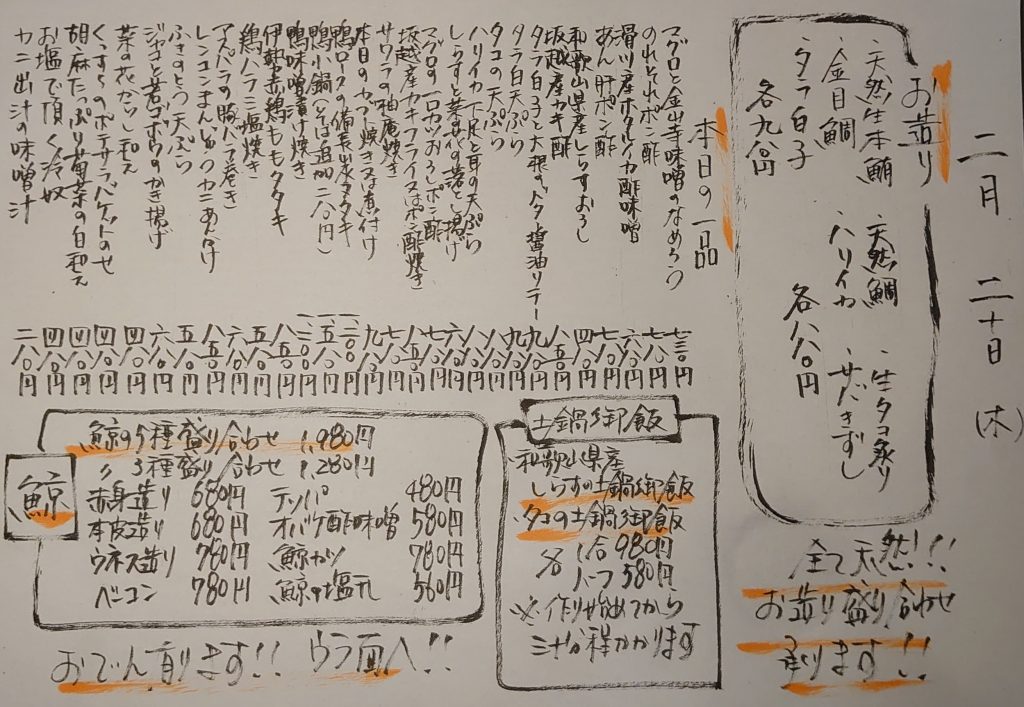 二月 二十日 (木)
お造り
・天然生本鮪 ・天然鯛 ・生タコ炙り
・金目鯛 ・ハリイカ ・サバきずし
・タラ白子
各九八〇円 各八八〇円
全て天然!!
お造り盛り合わせ
承ります!!
本日の一品
マグロと金山寺味噌のなめろう
のれそれポン酢
滑川産ホタルイカ酢味噌
あん肝ポン酢
和歌山県産しらすおろし
坂越産カキ酢
タラ白子と大根バター醤油ソテー
タラ白子天ぷら
タコの天ぷら
ハリイカ下足と耳の天ぷら
しらすと菜の花の落とし揚げ
マグロの一口カツおろしポン酢
坂越産カキフライ又はポン酢焼き
サワラの柚庵焼き
本日のカブト焼き又は煮付け
鴨ロースの備長炭タタキ
鴨小鍋(そば追加二八〇円)
鴨味噌漬け焼き
伊勢赤鶏ももタタキ
鶏ハラミ塩焼き
アスパラの豚バラ巻き
レンコンまんじゅうカニあんかけ
ふきのとう天ぷら
ジャコと若ゴボウのかき揚げ
菜の花からし和え
くっすらのポテサラバゲットのせ
胡麻たっぷり菊菜の白和え
お塩で頂く冷奴
カニ出汁の味噌汁
土鍋御飯
・和歌山県産
しらすの土鍋御飯
・タコの土鍋御飯
各 1合 980円
ハーフ 580円
※作り始めてから
三十分程かかります
鯨
鯨の5種盛り合わせ 1,980円
〃 3種盛り合わせ 1,280円
赤身造り 680円 テッパ 480円
本皮造り 680円 オバケ酢味噌 580円
ウネス造り 780円 鯨カツ 780円
ベーコン 780円 鯨の塩タレ 560円
おでん有ります!! ウラ面へ!!